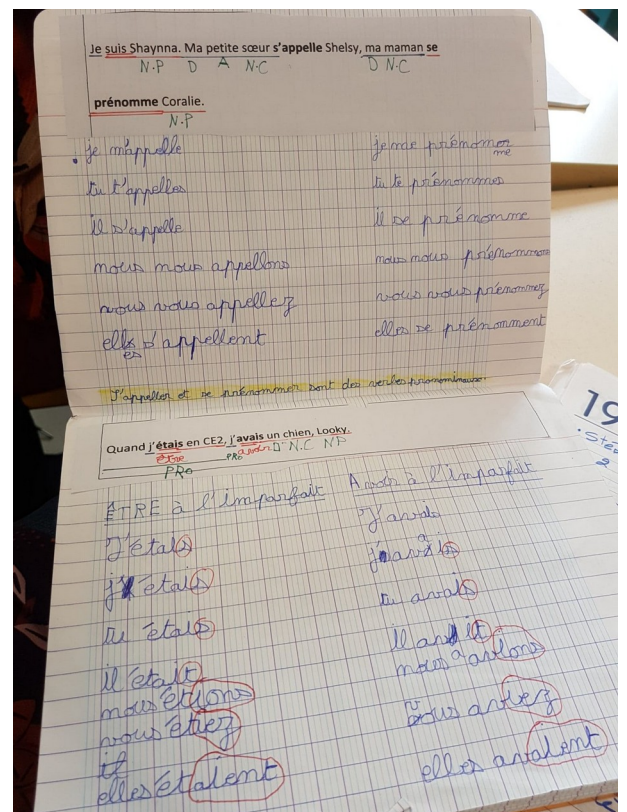 Je suis Shaynna. Ma petite sœur s'appelle Shelsy, ma maman se
N.P D A N.C D N.C
prénomme Coralie.
N.P
je m'appelle
tu t'appelles
il s'appelle
nous nous appellons
vous vous appellez
elles s'appellent
je me prénomme
tu te prénommes
il se prénomme
nous nous prénommons
vous vous prénommez
elles se prénomment
S'appeller et se prénommer sont des verbes pronominaux.
Quand j'étais en CE2, j'avais un chien, Looky.
être PRO avoir D N.C NP
PRO
ÊTRE à l'imparfait
J'étais
j'étais
tu étais
il était
nous étions
vous étiez
elles étaient
Avoir à l'imparfait
J'avais
j'avais
tu avais
il avait
nous avions
vous aviez
elles avaient
19